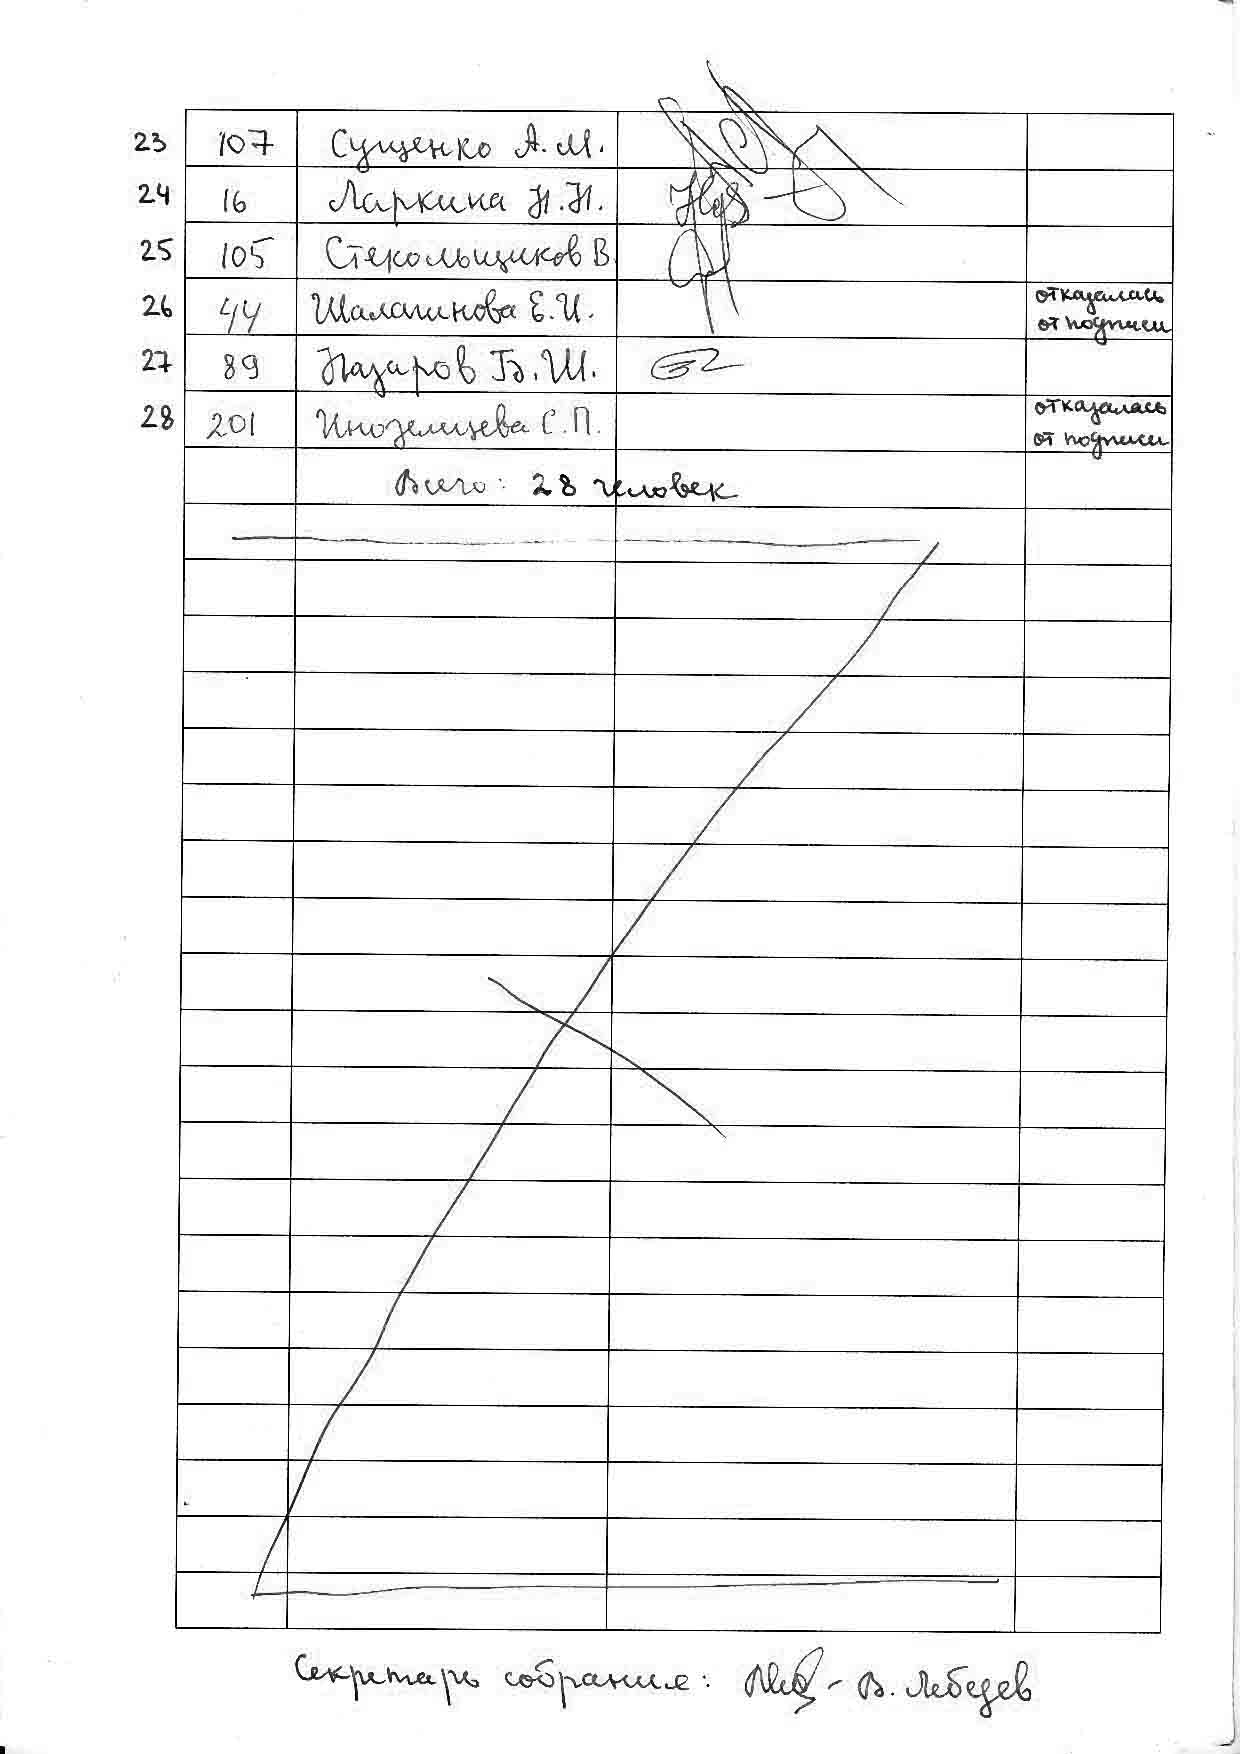 23 107 Сущенко А.М.
24 16 Ларкина Н.Н.
25 105 Стекольщиков В.
26 44 Шалагинова Е.И. отказалась
от подписи
27 89 Назаров Б.Ш.
28 201 Иноземцева С.П. отказалась
от подписи
Всего: 28 человек
Секретарь собрания: В. Лебедев